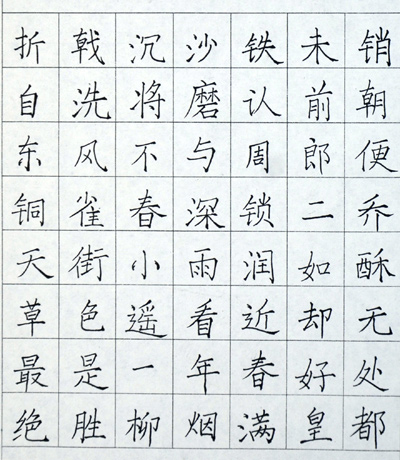 折戟沉沙铁未销
自洗将磨认前朝
东风不与周郎便
铜雀春深锁二乔
天街小雨润如酥
草色遥看近却无
最是一年春好处
绝胜柳烟满皇都